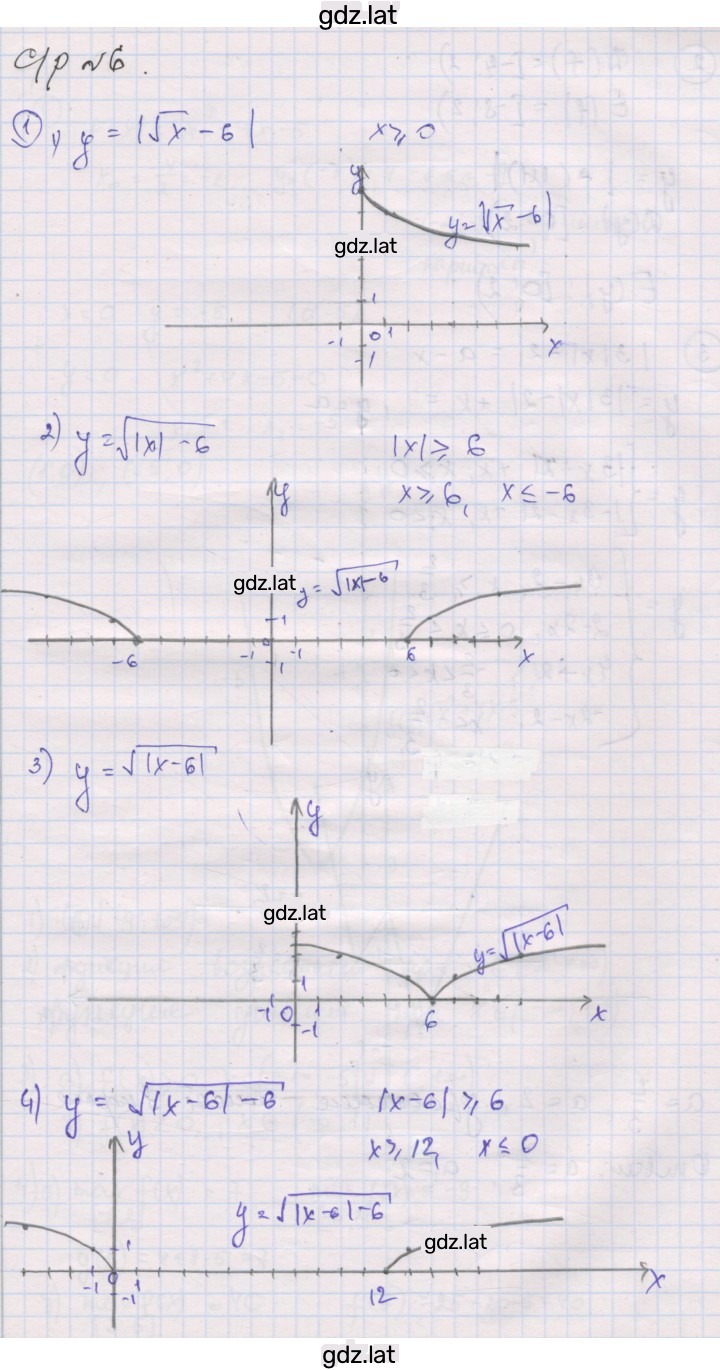 gdz.lat
С/р №6.
① 1) y = |√x - 6|    x ≥ 0
y
y = |√x - 6|
gdz.lat
1
-1 0 1 x
-1
2) y = √(|x| - 6)    |x| ≥ 6
x ≥ 6, x ≤ -6
y
gdz.lat y = √(|x| - 6)
1
-6 -1 0 1 6 x
-1
3) y = √|x - 6|
y
gdz.lat
y = √|x - 6|
1
-1 0 1 6 x
-1
4) y = √(|x - 6| - 6)    |x - 6| ≥ 6
y    x ≥ 12, x ≤ 0
y = √(|x - 6| - 6)
gdz.lat
1
-1 0 1 12 x
-1
gdz.lat